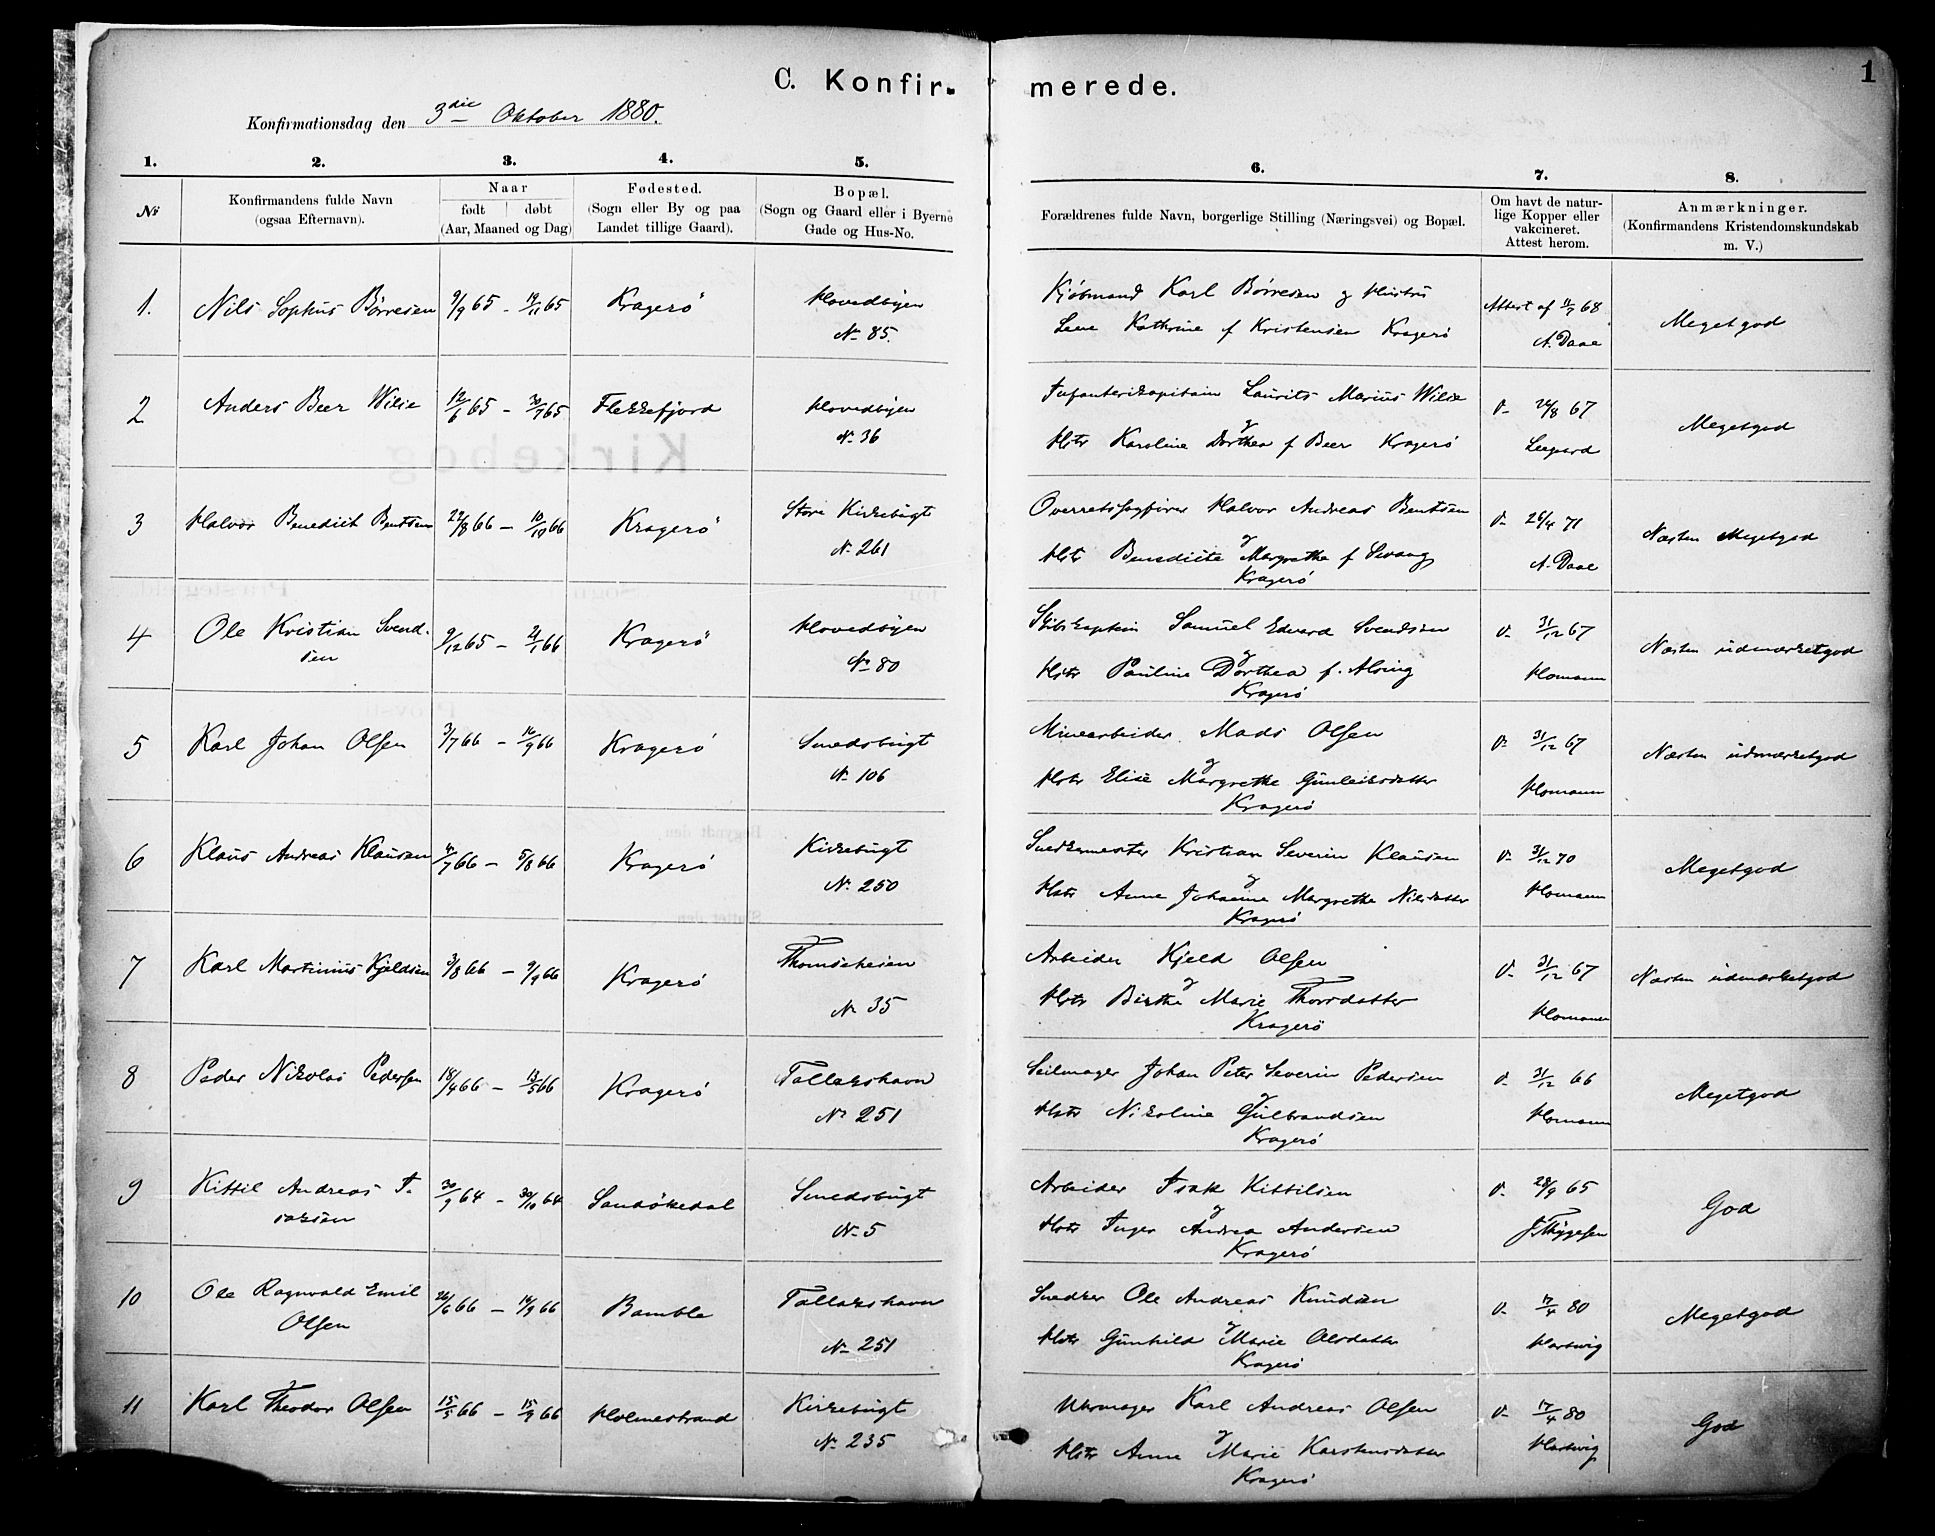 C. Konfir-merede.
1
Konfirmationsdag den 3die Oktober 1880.
1. 2. 3. 4. 5. 6. 7. 8.
No
Konfirmandens fulde Navn (ogsaa Efternavn).
Naar født døbt (Aar, Maaned og Dag)
Fødested. (Sogn eller By og paa Landet tillige Gaard).
Bopæl. (Sogn og Gaard eller i Byerne Gade og Hus-No.
Forældrenes fulde Navn, borgerlige Stilling (Næringsvei) og Bopæl.
Om havt de naturlige Kopper eller vakcineret. Attest herom.
Anmærkninger. (Konfirmandens Kristendomskundskab m. V.)
1. Nils Sophus Børresen 9/9 65 - 19/11 65 Kragerø Hovedbyen Kjøbmand Karl Børresen og Hustru Attest af 11/7 68 Megetgod
No 85. Lene Kathrine f Kristensen Kragerø A. Daae
2 Anders Beer Wilse 12/6 65 - 30/7 65 Flekkefjord Hovedbyen Infanterikapitain Laurits Marius Wilse Do 24/8 67 Megetgod
No 36 og Hstr Karoline Dorthea f Beer Kragerø
3 Halvor Benedict Bentsen 22/8 66 - 10/10 66 Kragerø Store Kirkebugt Overretssagfører Halvor Andreas Bentsen Do 26/4 71 Næsten Megetgod
No 261 og Hstr Benedicte Margrethe f Kragerø A. Daae
4 Ole Kristian Svendsen 9/12 65 - 21/1 66 Kragerø Hovedbyen Skibskaptein Samuel Edvard Svendsen Do 31/12 67 Næsten udmærketgod
No 80 og Hstr Pauline Dorthea f. Kragerø Homann
5 Karl Johan Olsen 3/7 66 - 16/9 66 Kragerø Smedsbugt Minearbeider Mads Olsen Do 31/12 67 Næsten udmærketgod
No 106 og Hstr Elise Margrethe Gunleiksdatter Kragerø Homann
6 Klaus Andreas Klausen 4/7 66 - 5/8 66 Kragerø Kirkebugt Snedkermester Kristian Severin Klausen Do 31/12 70 Megetgod
No 250 og Hstr Anne Johanne Margrethe Nilsdatter Kragerø Homann
7 Karl Martinius Kjeldsen 3/8 66 - 9/9 66 Kragerø Thomseheien Arbeider Kjeld Olsen Do 31/12 67 Næsten udmærketgod
No 35 og Hstr Birthe Marie Thorsdatter Kragerø Homann
8 Peder Nikolai Pedersen 18/4 66 - 13/5 66 Kragerø Tallakshavn Seilmager Johan Peter Severin Pedersen Do 31/12 66 Megetgod
No 251 og Hstr Nikoline Gulbrandsen Kragerø Homann
9 Kittil Andreas Isaksen 30/9 64 - 30/10 64 Sandøkedal Smedsbugt Arbeider Isak Kittilsen Do 28/9 65 God
No 5 og Hstr Inger Andrea Andersen Kragerø J Thygesen
10 Ole Ragnvald Emil Olsen 26/6 66 - 14/9 66 Bamble Tallakshavn Snedker Ole Andreas Knudsen Do 17/4 80 Megetgod
No 251 og Hstr Gunhild Marie Olsdatter Kragerø Hartwig
11 Karl Theodor Olsen 15/5 66 - 15/9 66 Holmestrand Kirkebugt Uhrmager Karl Andreas Olsen Do 17/4 80 God
No 235 og Hstr Anne Marie Karstensdatter Kragerø Hartwig